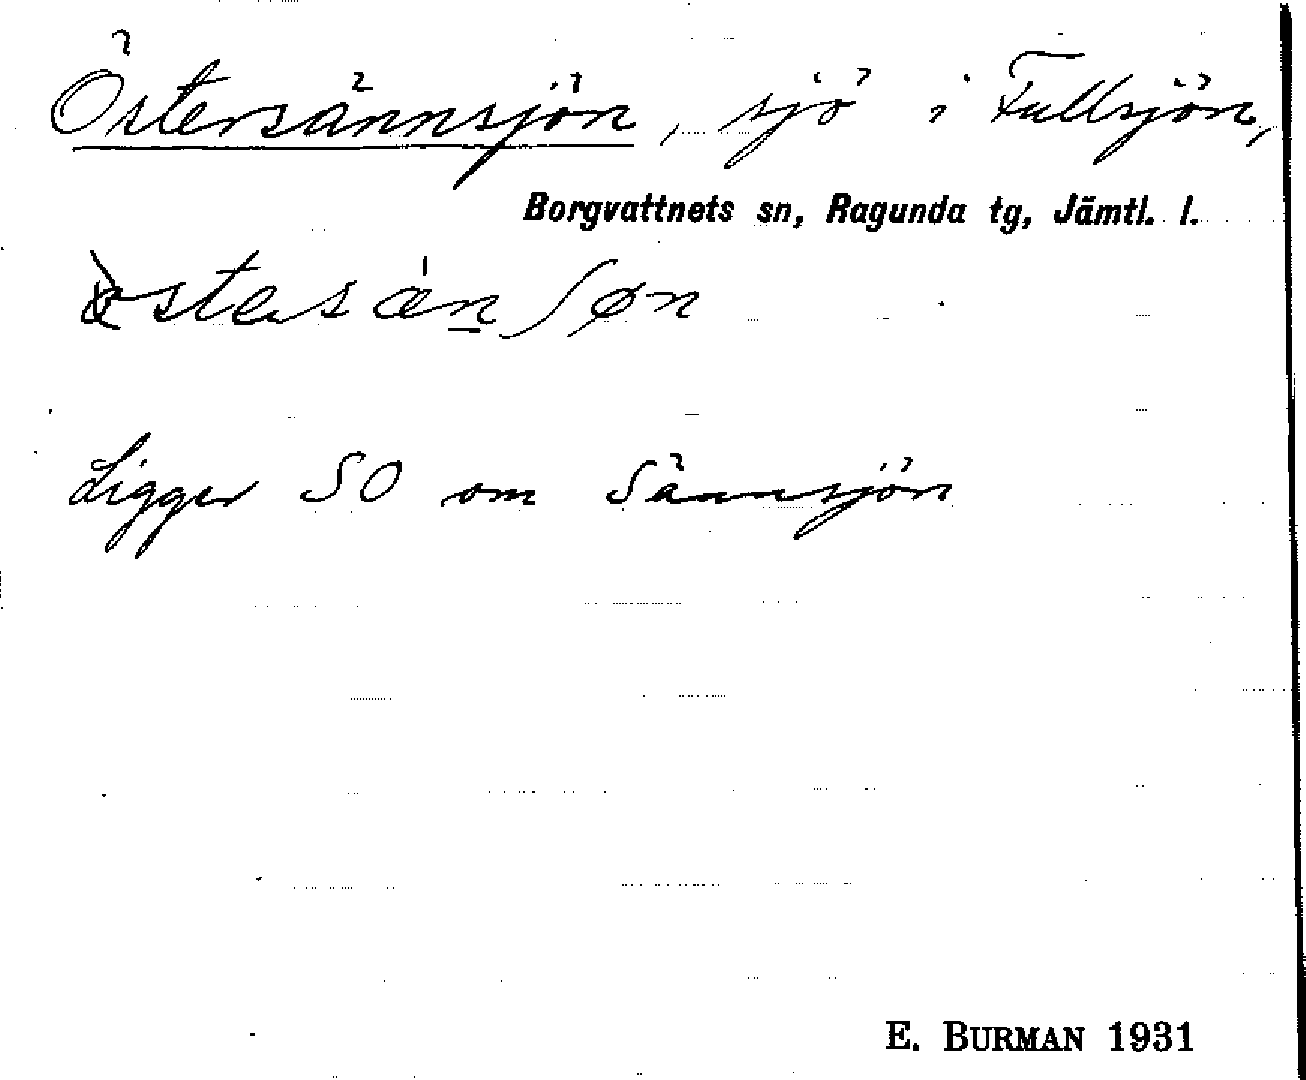 Östersännsjön, sjö i Fullsjön,
Borgvattnets sn, Ragunda tg, Jämtl. l.
Ligger SO om Sännsjön
E. BURMAN 1931